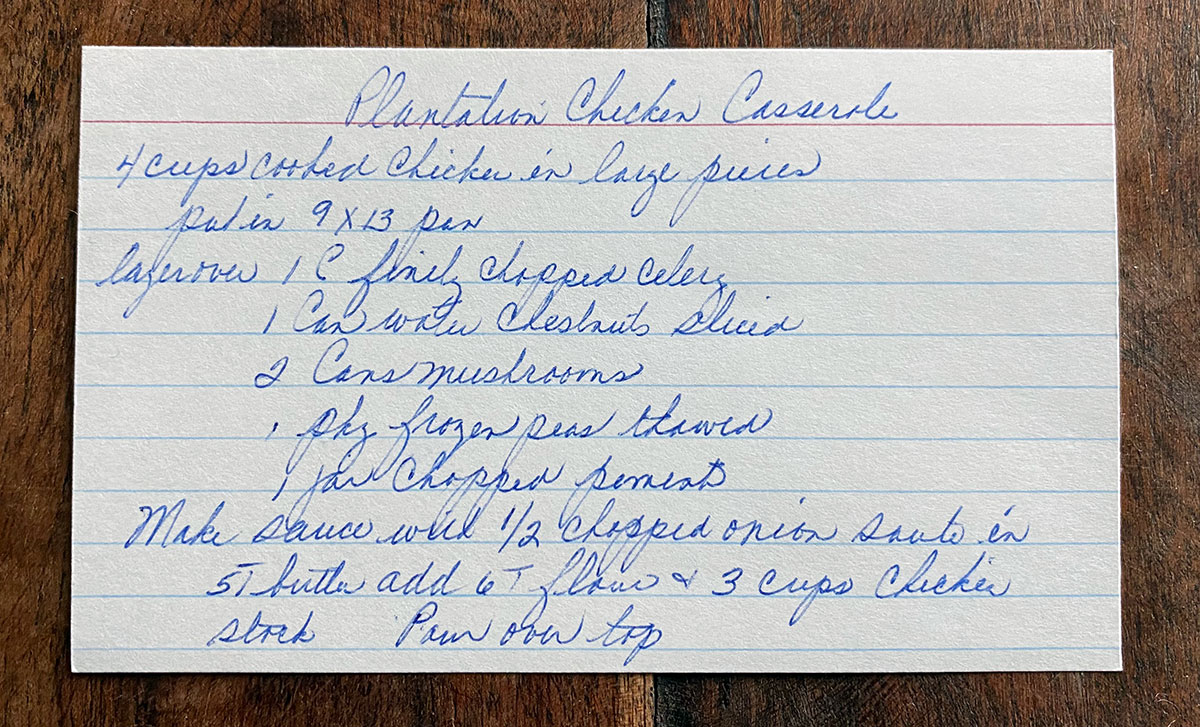 Plantation Chicken Casserole
4 cups cooked chicken in large pieces
put in 9 x 13 pan
layer over 1 C finely chopped celery
1 Can water chestnuts sliced
2 Cans mushrooms
1 pkg frozen peas thawed
1 jar chopped pimento
Make sauce with 1/2 chopped onion saute in
5T butter add 6 T flour & 3 cups chicken
stock Pour over top